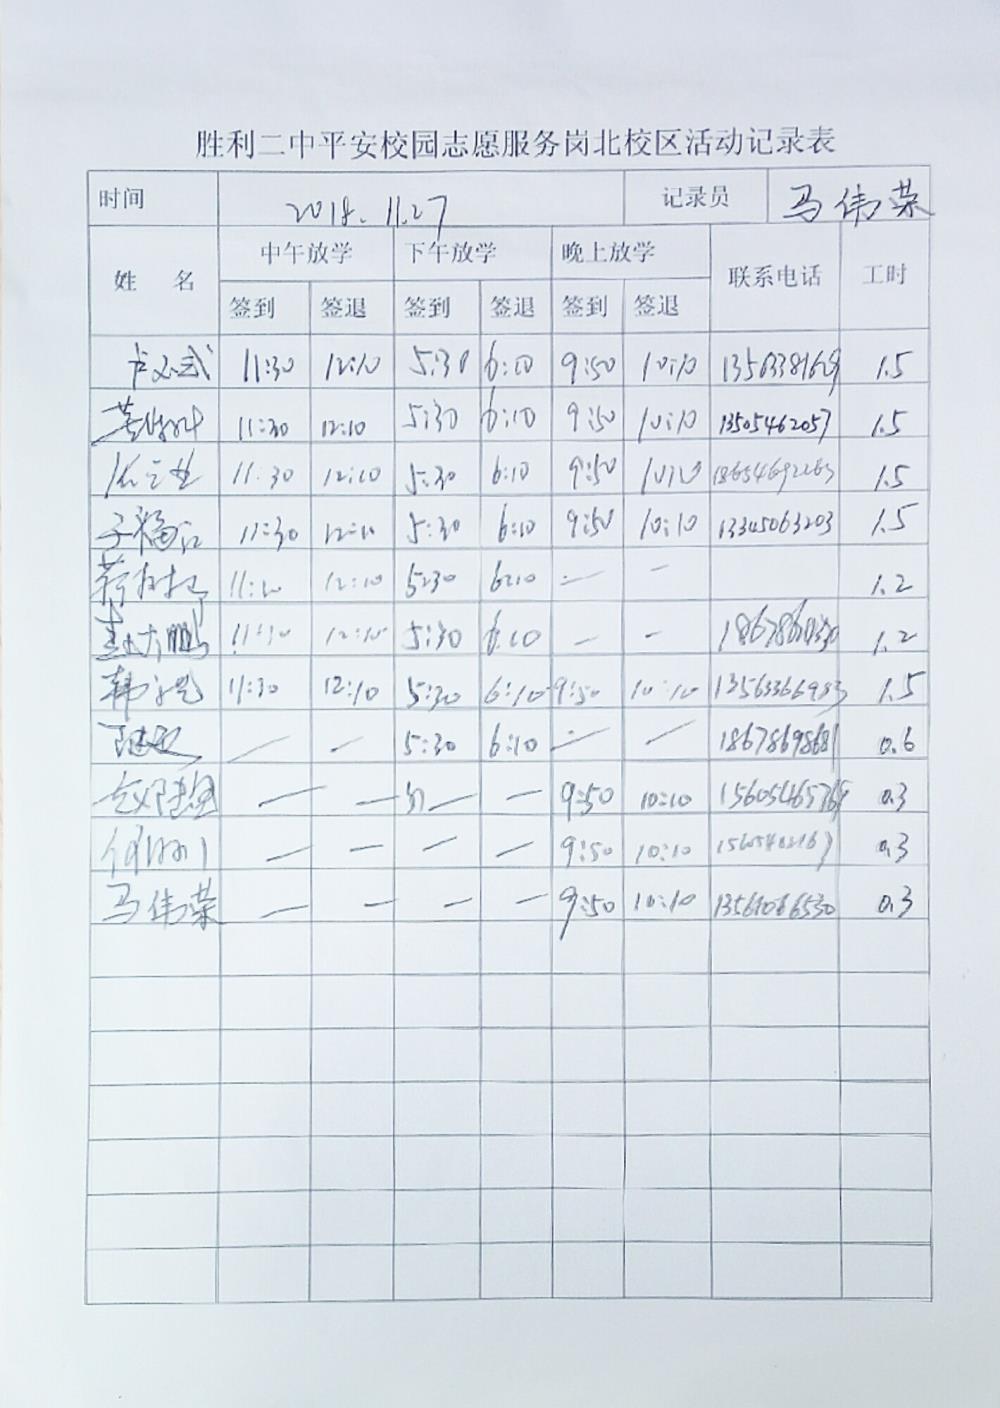 胜利二中平安校园志愿服务岗北校区活动记录表
时间 2018.11.27 记录员 马伟荣
姓 名 中午放学 下午放学 晚上放学 联系电话 工时
签到 签退 签到 签退 签到 签退
11:30 12:10 5:30 6:10 9:50 10:10 1.5
11:30 12:10 5:30 6:10 9:50 10:10 13505462057 1.5
11:30 12:10 5:30 6:10 9:50 10:10 1.5
11:30 12:10 5:30 6:10 9:50 10:10 13345063203 1.5
12:10 5:30 6:10 — — 1.2
11:30 12:10 5:30 6:10 — — 1.2
11:30 12:10 5:30 6:10 9:50 10:10 13563366983 1.5
— — 5:30 6:10 — — 18678698681 0.6
— — — — 9:50 10:10 0.3
— — — — 9:50 10:10 0.3
马伟荣 — — — — 9:50 10:10 13561066530 0.3